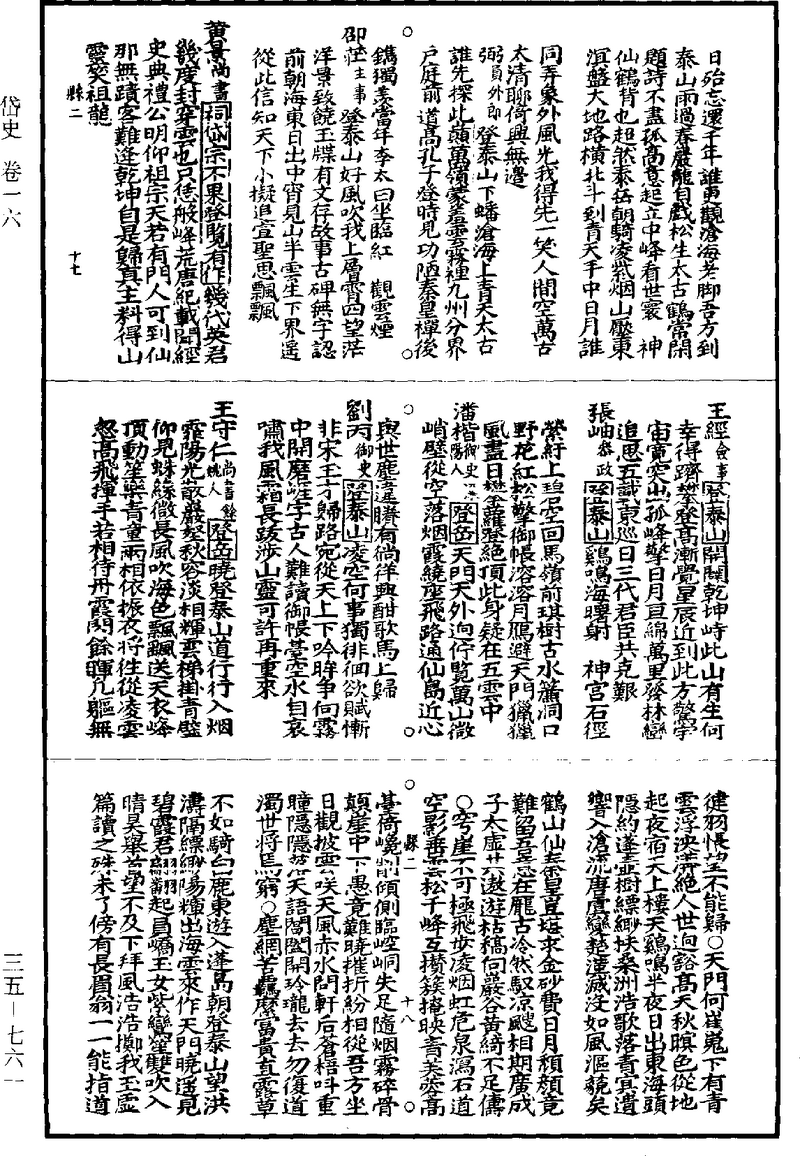 日殆忘還千年誰更觀滄海老脚吾方到
泰山雨過春巖龍自戲松生太古鶴常閑
題詩不盡孤高意起立中峰看世寰　神
仙鶴背也超然泰岳朝騎凌紫烟山壓東
溟盤大地路橫北斗到青天手中日月誰
同弄象外風光我得先一笑人間空萬古
太清聊倚興無邊
弼員外郎登泰山下蟠滄海上青天太古
誰先探此巔萬嶺蒙蒙雲霧裡九州分界
戶庭前道高孔子登時見功陋秦皇禪後
鐫獨羨當年李太白坐臨紅　觀雲煙
邵莊主事登泰山好風吹我上層霄四望茫
洋景致饒玉牒有文存故事古碑無字認
前朝海東日出中宵見山半雲生下界遙
從此信知天下小擬追宣聖思飄飄
黃景尚書祠岱宗不果登覽有作幾代英君
幾度封穿雲也只恁般峰荒唐紀載聞經
史典禮公明仰祖宗天若有門人可到仙
那無蹟客難逢乾坤自是歸真主料得山
靈笑祖龍
縣二
十七
王經僉事登泰山開闢乾坤峙此山有生何
幸得躋攀登高漸覺星辰近到此方驚宇
宙寬突出孤峰擎日月亘綿萬里發林巒
追思五載東巡日三代君臣共克艱
張岫叅政登泰山鷄鳴海曙射　神宮石徑
縈紆上碧空回馬嶺前琪樹古水簾洞口
野花紅松擎御帳溶溶月鴈避天門獵獵
風盡日攀蘿登絕頂此身疑在五雲中
潘楷御史陽人登岳天門天外迥佇覽萬山微
峭壁從空落烟霞繞座飛路通仙島近心
與世塵違賸有徜徉興酣歌馬上歸
劉丙御史登泰山凌空何事獨徘徊欲賦慚
非宋玉才歸路宛從天上下吟眸爭向霧
中開磨崖字古人難讀御帳臺空水自哀
嘯我風霜長跋涉山靈可許再重來
王守仁尚書餘姚人登岳曉登泰山道行行入烟
霏陽光散巖壑秋容淡相輝雲梯掛青壁
仰見蛛絲微長風吹海色飄颻送天衣峰
頂動笙樂青童兩相依振衣將往從凌雲
忽高飛揮手若相待丹霞閃餘暉凡軀無
健羽悵望不能歸○天門何崔嵬下有青
雲浮泱漭絕人世迥豁高天秋暝色從地
起夜宿天上樓天鷄鳴半夜日出東海頭
隱約蓬壺樹縹緲扶桑洲浩歌落青冥遺
響入滄流唐虞變楚漢滅沒如風漚藐矣
鶴山仙秦皇豈堪求金砂費日月頹顏竟
難留吾意在龐古冷然馭涼颸相期廣成
子太虛共遨遊枯稿向巖谷黃綺不足儔
○穹崖不可極飛步凌烟虹危泉瀉石道
空影垂雲松千峰互攅簇掩映青芙蓉高
臺倚巉削傾側臨崆峒失足隨烟霧碎骨
顛崖中下愚竟難曉摧折紛相從吾方坐
日觀披雲咲天風赤水問軒后蒼梧叫重
瞳隱隱落天語閶闔開玲瓏去去勿復道
濁世將焉窮○塵網苦羈縻富貴真露草
不如騎白鹿東遊入蓬島朝登泰山望洪
濤隔縹緲陽輝出海雲來作天門曉遥見
碧霞君翩翩起員嶠玉女紫鸞笙雙吹入
晴昊舉首望不及下拜風浩浩擲我玉虛
篇讀之殊未了傍有長眉翁一一能指道
縣二
十八
岱史　卷一六
三五－七六一